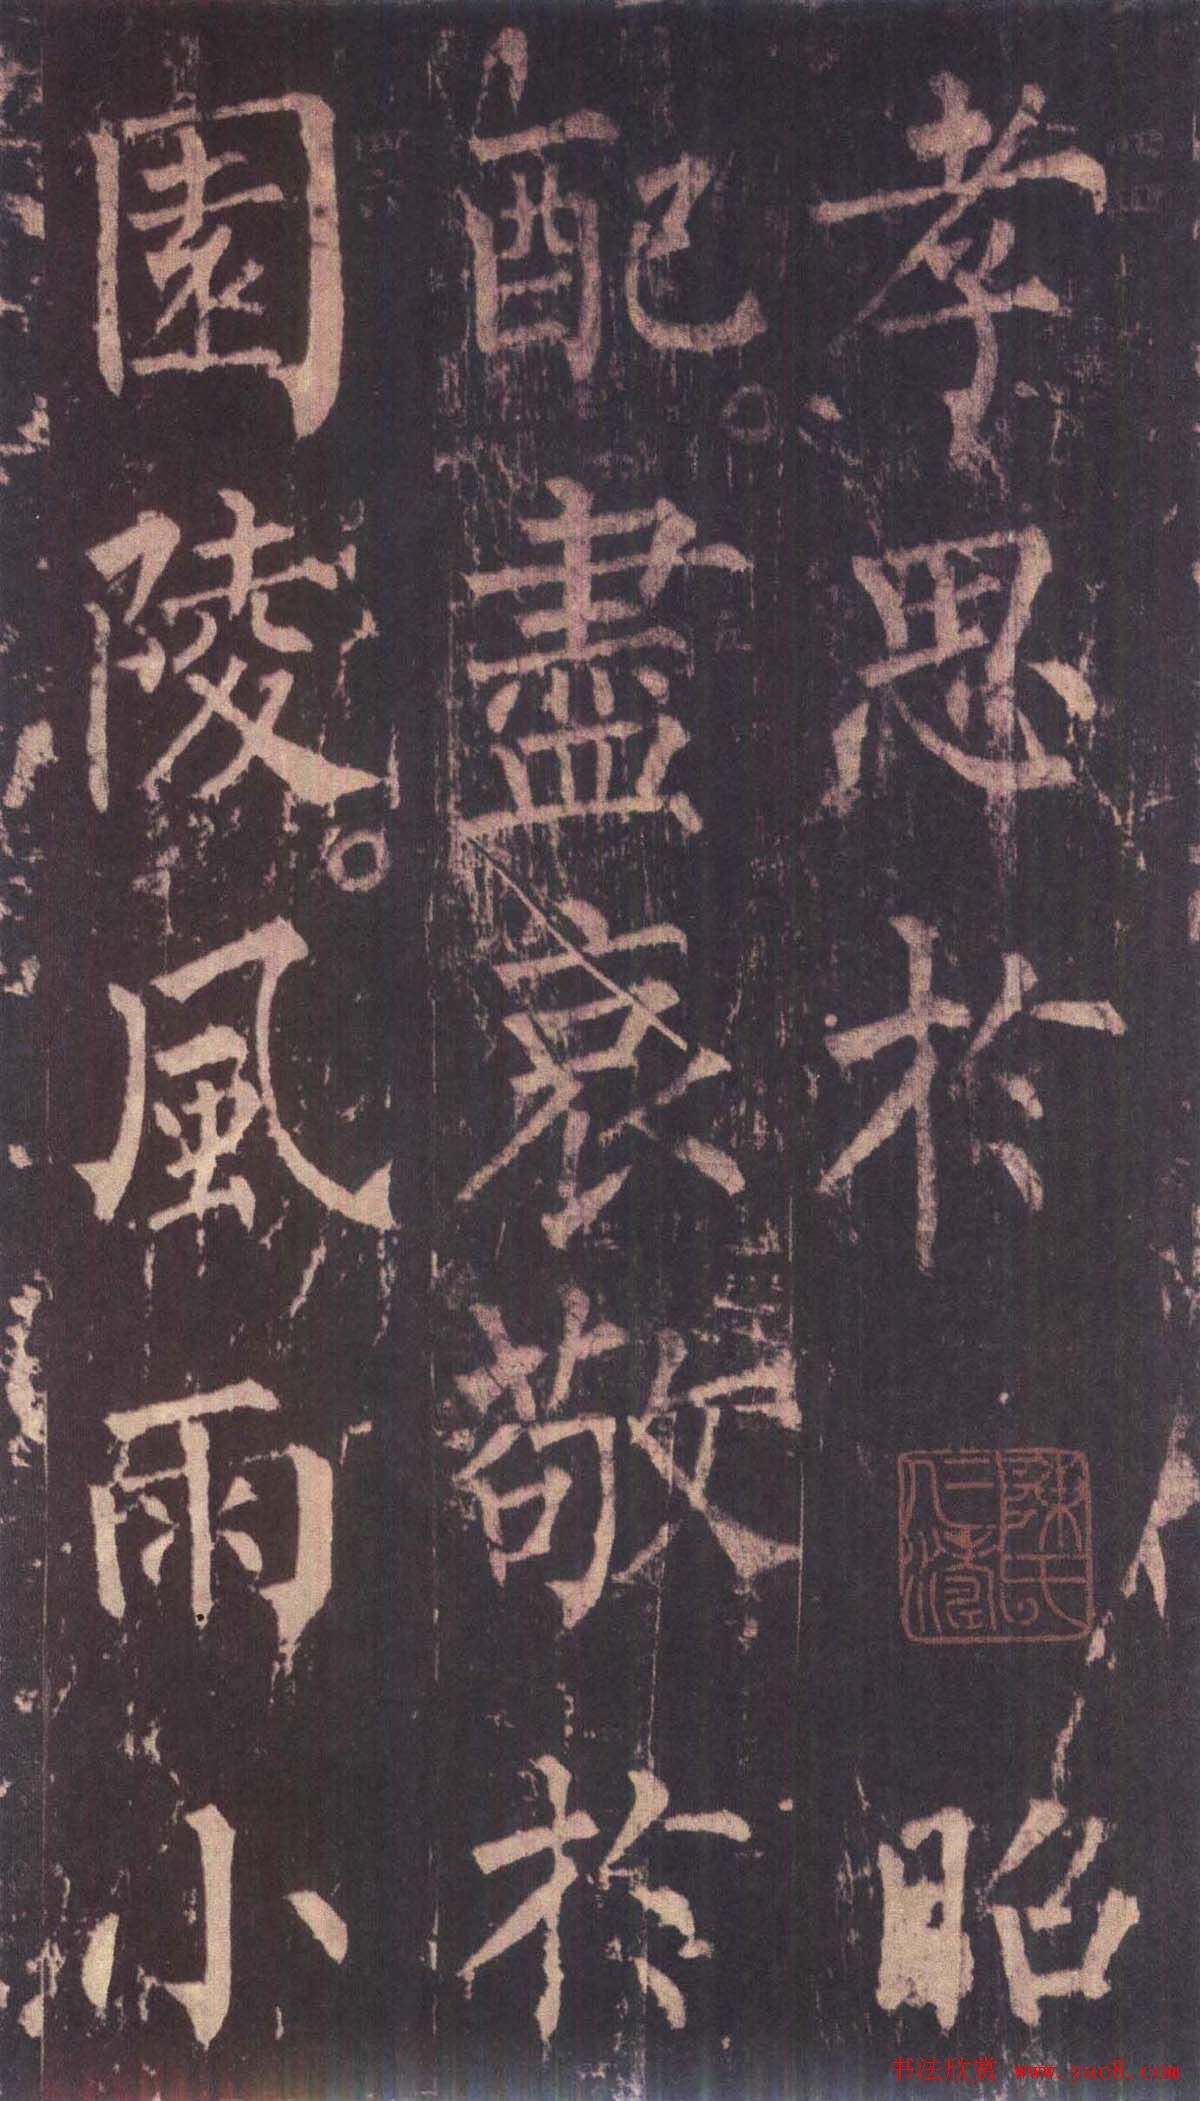 孝思於昭
配盡哀敬於
園陵風雨小
陳氏仁濤
书法欣赏 www.yac8.com